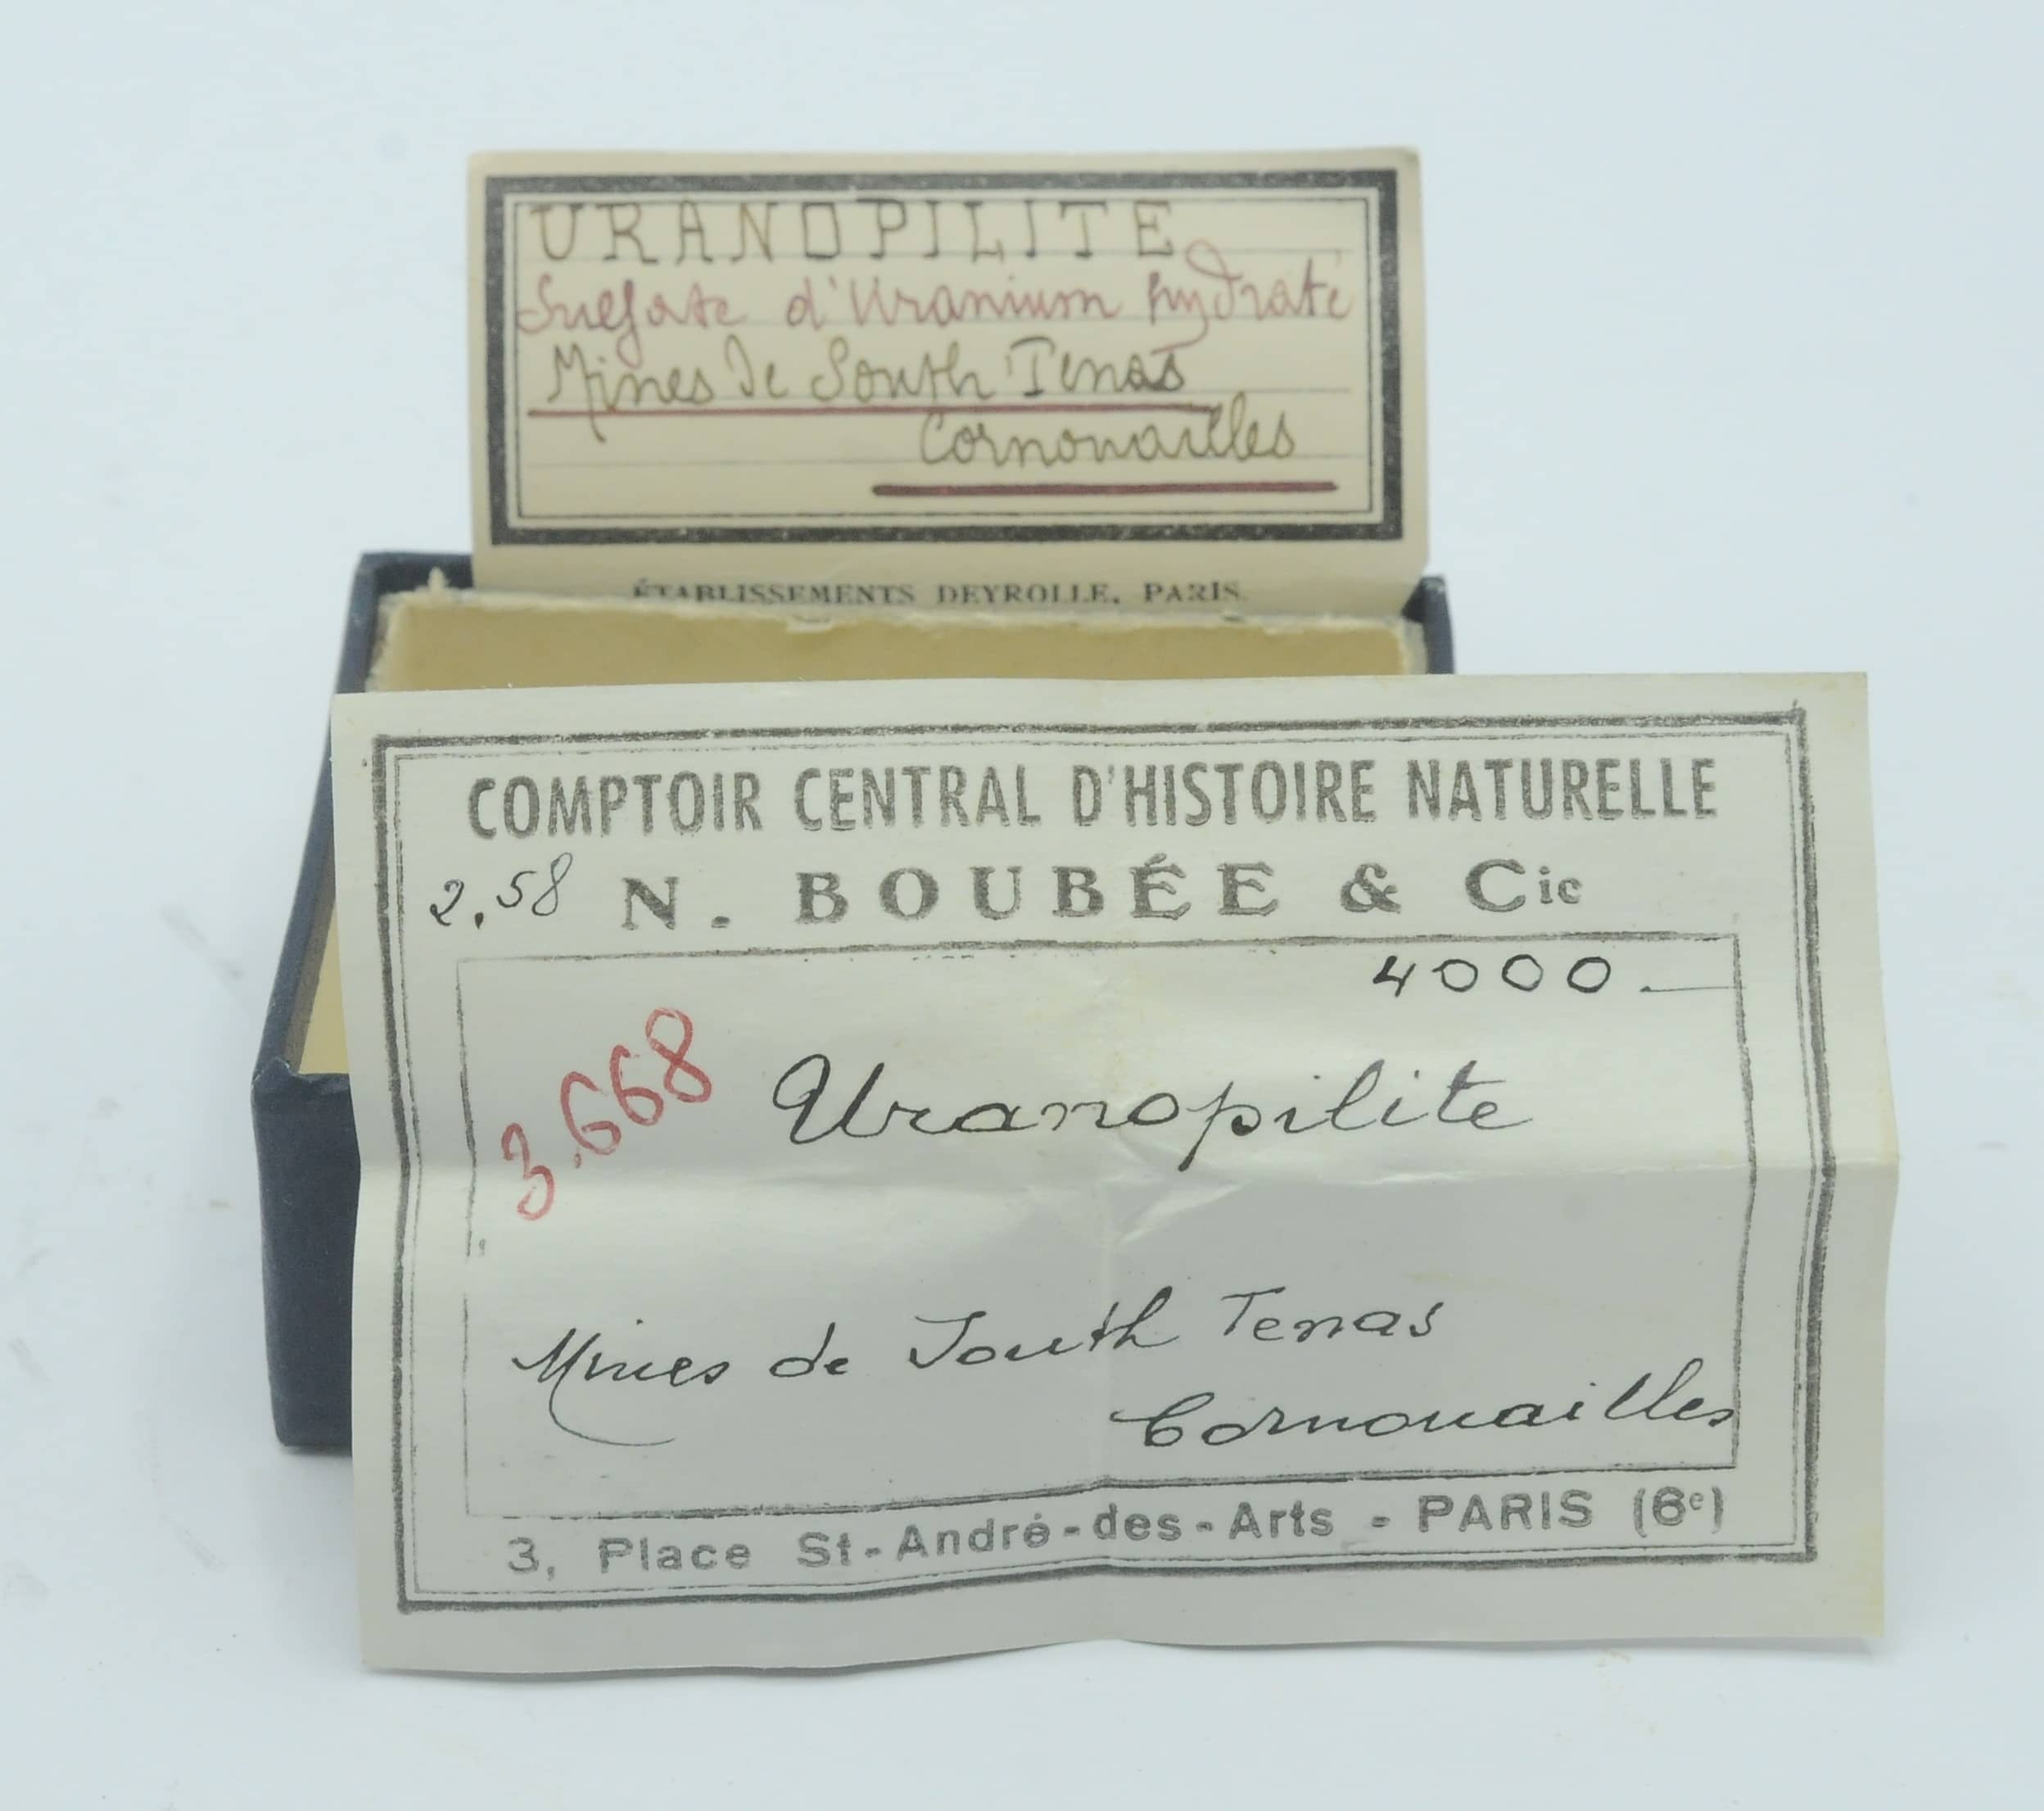 URANOPILITE
Sulfate d'Uranium hydraté
Mines de South Tenas
Cornouailles
ÉTABLISSEMENTS DEYROLLE, PARIS.
COMPTOIR CENTRAL D'HISTOIRE NATURELLE
2.58 N. BOUBÉE & Cie
4000.—
3.668 Uranopilite
Mines de South Tenas
Cornouailles
3, Place St-André-des-Arts - PARIS (6e)